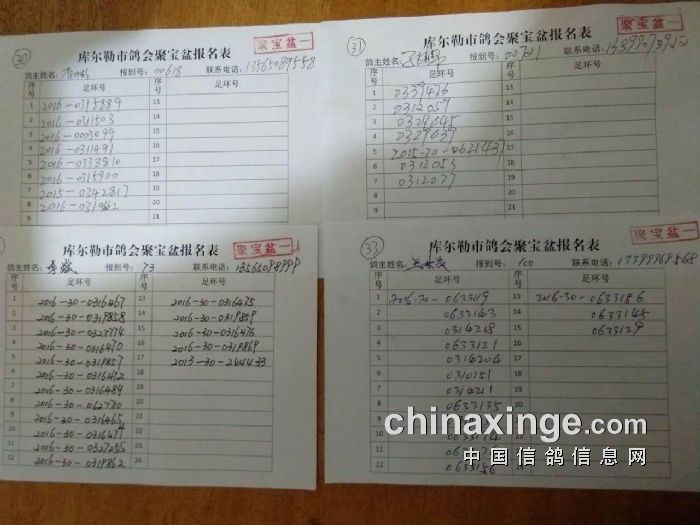 30
库尔勒市鸽会聚宝盆报名表
聚宝盆一
鸽主姓名: 报到号: 00618 联系电话: 13565089558
序号 足环号 序号 足环号
1 2016-0315889 13
2 2016-0311503 14
3 2016-0003099 15
4 2016-0311491 16
5 2016-0333810 17
6 2016-0315900 18
7 2015-0342817 19
8 2016-0319662 20
21
31
库尔勒市鸽会聚宝盆报名表
聚宝盆一
鸽主姓名: 报到号: 00721 联系电话:
序号 足环号 序号 足环号
1 0339476 13
2 0312059 14
3 0328645 15
4 0329039 16
5 2015-30-0621437 17
6 0312053 18
7 0312077 19
8 20
21
库尔勒市鸽会聚宝盆报名表
聚宝盆一
鸽主姓名: 报到号: 73 联系电话: 13565098999
序号 足环号 序号 足环号
1 2016-30-0316467 13 2016-30-0316475
2 2016-30-0319858 14 2016-30-0319859
3 2016-30-0327774 15 2016-30-0316476
4 2016-30-0316470 16 2016-30-0319869
5 2016-30-0319857 17 2013-30-2444433
6 2016-30-0316472 18
7 2016-30-0316484 19
8 2016-30-062780 20
9 2016-30-0316465 21
10 2016-30-0316477 22
11 2016-30-0327255 23
12 2016-30-0319862 24
33
库尔勒市鸽会聚宝盆报名表
聚宝盆一
鸽主姓名: 报到号: 100 联系电话: 13399969568
序号 足环号 序号 足环号
1 2016-30-0633119 13 2016-30-0633186
2 0633163 14 0633145
3 0314228 15 0633129
4 0633121 16
5 0314204 17
6 0310151 18
7 0314211 19
8 0633135 20
12 0633156
chinaxinge.com
中国信鸽信息网